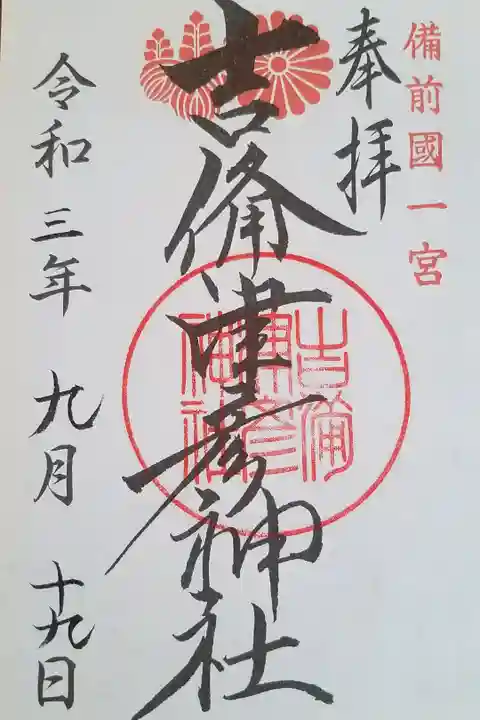 備前國一宮
奉拝
吉備津彦神社
吉備
津彦
神社
令和三年九月十九日